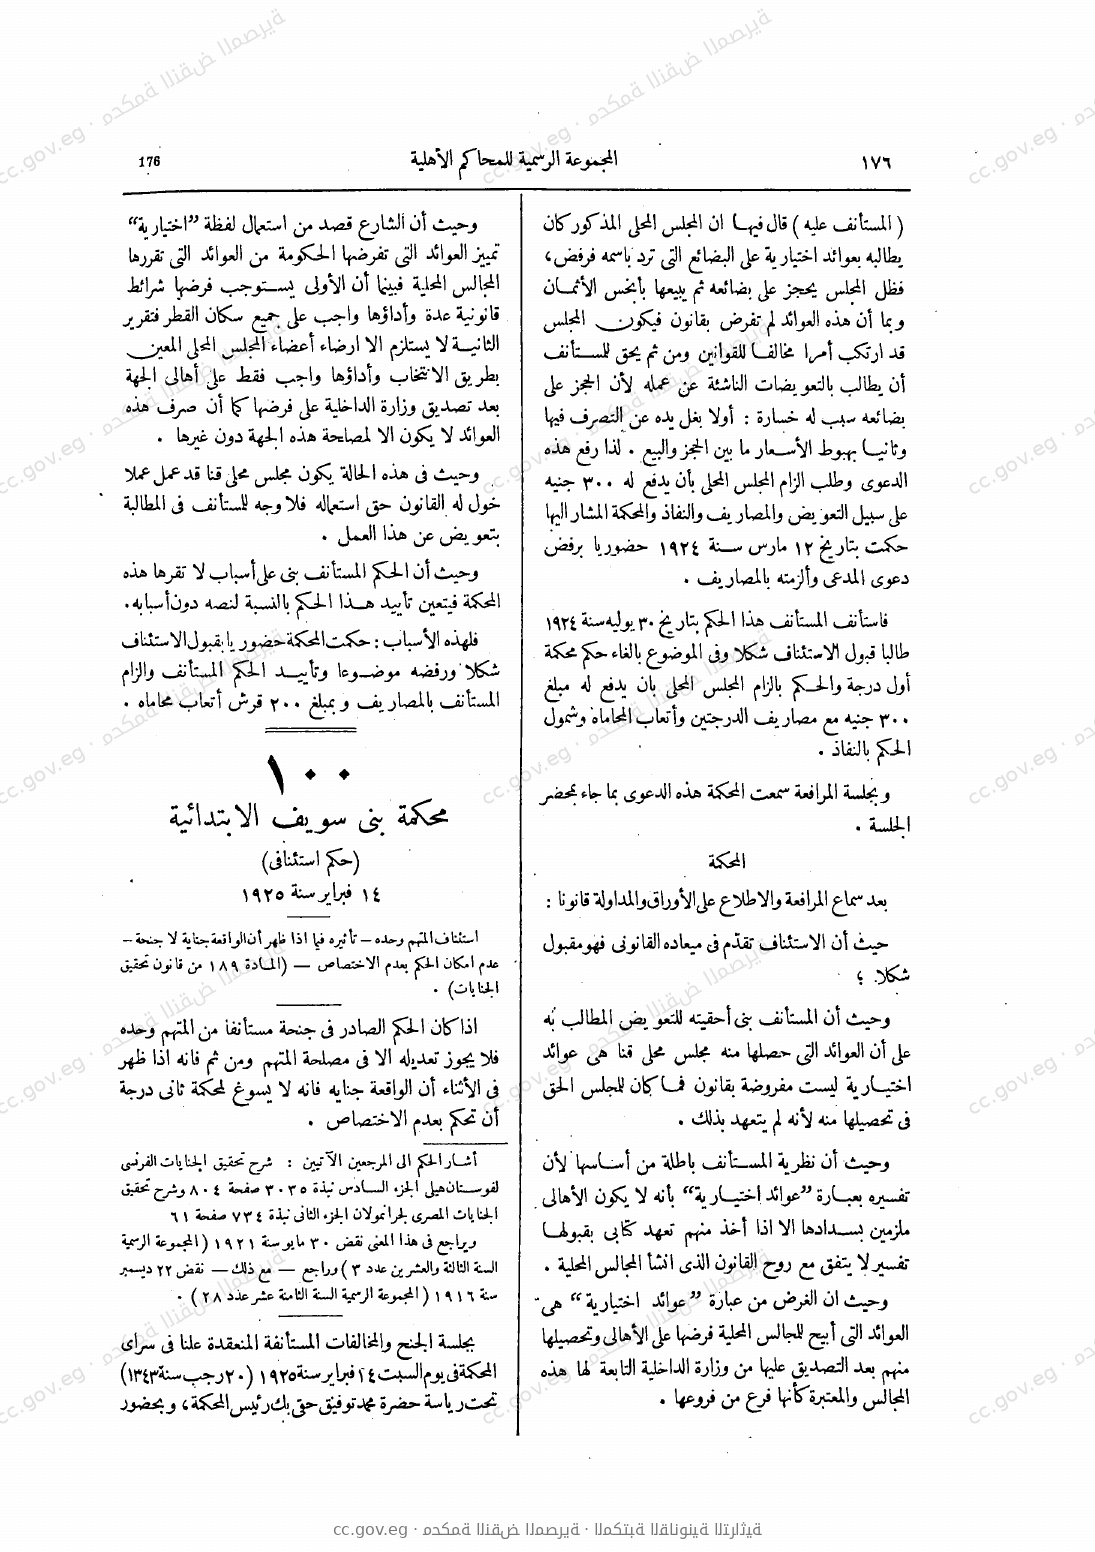 ١٧٦
المجموعة الرسمية للمحاكم الأهلية
176
( المستأنف عليه ) قال فيها ان المجلس المحلى المذكور كان
يطالبه بعوائد اختيارية على البضائع التى ترد باسمه فرفض،
فظل المجلس يحجز على بضائعه ثم يبيعها بأبخس الأثمان
وبما أن هذه العوائد لم تفرض بقانون فيكون المجلس
قد ارتكب أمرا مخالفا للقوانين ومن ثم يحق للمستأنف
أن يطالب بالتعويضات الناشئة عن عمله لأن الحجز على
بضائعه سبب له خسارة : أولا بغل يده عن التصرف فيها
وثانيا بهبوط الأسعار ما بين الحجز والبيع . لذا رفع هذه
الدعوى وطلب الزام المجلس المحلى بأن يدفع له ٣٠٠ جنيه
على سبيل التعويض والمصاريف والنفاذ والمحكمة المشار اليها
حكمت بتاريخ ١٢ مارس سنة ١٩٢٤ حضوريا برفض
دعوى المدعى وألزمته بالمصاريف .
فاستأنف المستأنف هذا الحكم بتاريخ ٣٠ يوليه سنة ١٩٢٤
طالبا قبول الاستئناف شكلا وفى الموضوع بالغاء حكم محكمة
أول درجة والحكم بالزام المجلس المحلى بان يدفع له مبلغ
٣٠٠ جنيه مع مصاريف الدرجتين وأتعاب المحاماة وشمول
الحكم بالنفاذ .
وبجلسة المرافعة سمعت المحكمة هذه الدعوى بما جاء بمحضر
الجلسة .
المحكمة
بعد سماع المرافعة والاطلاع على الأوراق والمداولة قانونا :
حيث أن الاستئناف تقدّم فى ميعاده القانونى فهو مقبول
شكلا ؛
وحيث أن المستأنف بنى أحقيته للتعويض المطالب به
على أن العوائد التى حصلها منه مجلس محلى قنا هى عوائد
اختيارية ليست مفروضة بقانون فما كان للمجلس الحق
فى تحصيلها منه لأنه لم يتعهد بذلك .
وحيث أن نظرية المستأنف باطلة من أساسها لأن
تفسيره بعبارة “عوائد اختيارية” بأنه لا يكون الأهالى
ملزمين بسدادها الا اذا أخذ منهم تعهد كتابى بقبولها
تفسير لا يتفق مع روح القانون الذى انشأ المجالس المحلية .
وحيث ان الغرض من عبارة “عوائد اختيارية” هى
العوائد التى أبيح للمجالس المحلية فرضها على الأهالى وتحصيلها
منهم بعد التصديق عليها من وزارة الداخلية التابعة لها هذه
المجالس والمعتبرة كأنها فرع من فروعها .
وحيث أن الشارع قصد من استعمال لفظة “اختيارية”
تمييز العوائد التى تفرضها الحكومة من العوائد التى تقررها
المجالس المحلية فبينما أن الأولى يستوجب فرضها شرائط
قانونية عدة وأداؤها واجب على جميع سكان القطر فتقرير
الثانية لا يستلزم الا ارضاء أعضاء المجلس المحلى المعين
بطريق الانتخاب وأداؤها واجب فقط على أهالى الجهة
بعد تصديق وزارة الداخلية على فرضها كما أن صرف هذه
العوائد لا يكون الا لمصلحة هذه الجهة دون غيرها .
وحيث فى هذه الحالة يكون مجلس محلى قنا قد عمل عملا
خول له القانون حق استعماله فلا وجه للمستأنف فى المطالبة
بتعويض عن هذا العمل .
وحيث أن الحكم المستأنف بنى على أسباب لا تقرها هذه
المحكمة فيتعين تأييد هذا الحكم بالنسبة لنصه دون أسبابه.
فلهذه الأسباب : حكمت المحكمة حضوريا بقبول الاستئناف
شكلا ورفضه موضوعا وتأييد الحكم المستأنف والزام
المستأنف بالمصاريف وبمبلغ ٢٠٠ قرش أتعاب محاماه .
١٠٠
محكمة بنى سويف الابتدائية
(حكم استئنافى)
١٤ فبراير سنة ١٩٢٥
استئناف المتهم وحده – تأثيره فيما اذا ظهر أن الواقعة جناية لا جنحة –
عدم امكان الحكم بعدم الاختصاص – (المادة ١٨٩ من قانون تحقيق
الجنايات) .
اذا كان الحكم الصادر فى جنحة مستأنفا من المتهم وحده
فلا يجوز تعديله الا فى مصلحة المتهم ومن ثم فانه اذا ظهر
فى الأثناء أن الواقعة جنايه فانه لا يسوغ لمحكمة ثانى درجة
أن تحكم بعدم الاختصاص .
أشار الحكم الى المرجعين الآتيين : شرح تحقيق الجنايات الفرنسى
لفوستان هيلى الجزء السادس نبذة ٣٠٣٥ صفحة ٨٠٤ وشرح تحقيق
الجنايات المصرى لجرانمولان الجزء الثانى نبذة ٧٣٤ صفحة ٦١
ويراجع فى هذا المعنى نقض ٣٠ مايو سنة ١٩٢١ ( المجموعة الرسمية
السنة الثالثة والعشرين عدد ٣ ) وراجع – مع ذلك – نقض ٢٢ ديسمبر
سنة ١٩١٦ ( المجموعة الرسمية السنة الثامنة عشر عدد ٢٨ ) .
بجلسة الجنح والمخالفات المستأنفة المنعقدة علنا فى سراى
المحكمة فى يوم السبت ١٤ فبراير سنة ١٩٢٥ (٢٠ رجب سنة ١٣٤٣)
تحت رياسة حضرة محمد توفيق حقى بك رئيس المحكمة ، وبحضور
cc.gov.eg · محكمة النقض المصرية · المكتبة القانونية التراثية